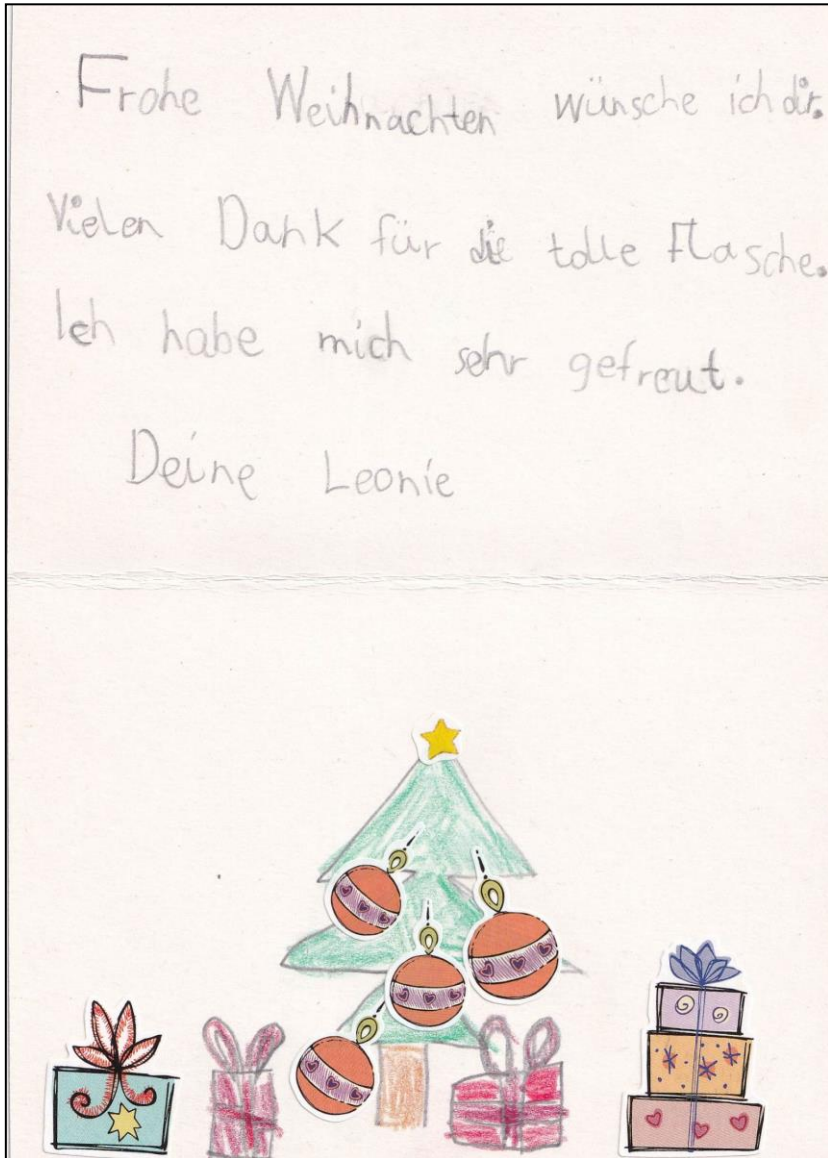 Frohe Weihnachten wünsche ich dir.
Vielen Dank für die tolle Flasche.
Ich habe mich sehr gefreut.
Deine Leonie